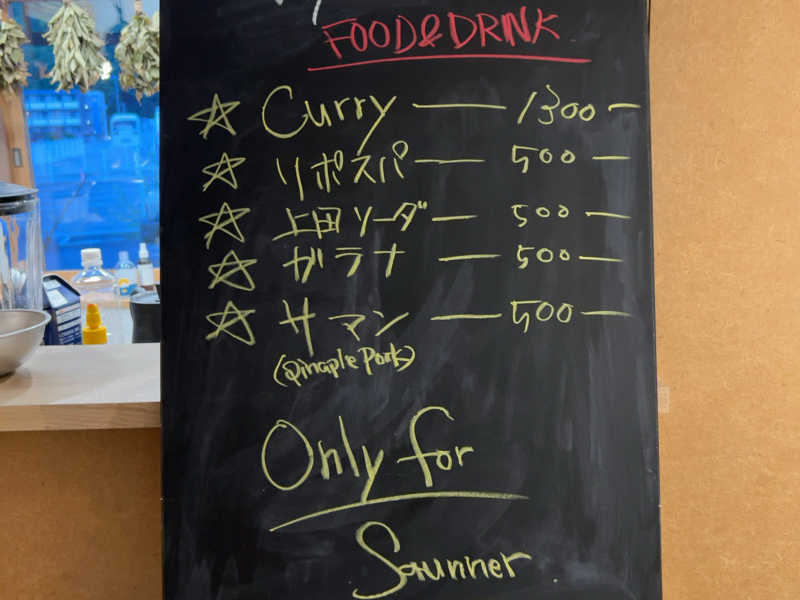 FOOD&DRINK
☆ Curry — 1300 —
☆ リポスパ — 500 —
☆ 上田ソーダ — 500 —
☆ ガラナ — 500 —
☆ サマン — 500 —
(pinaple Pork)
Only for
Saunner